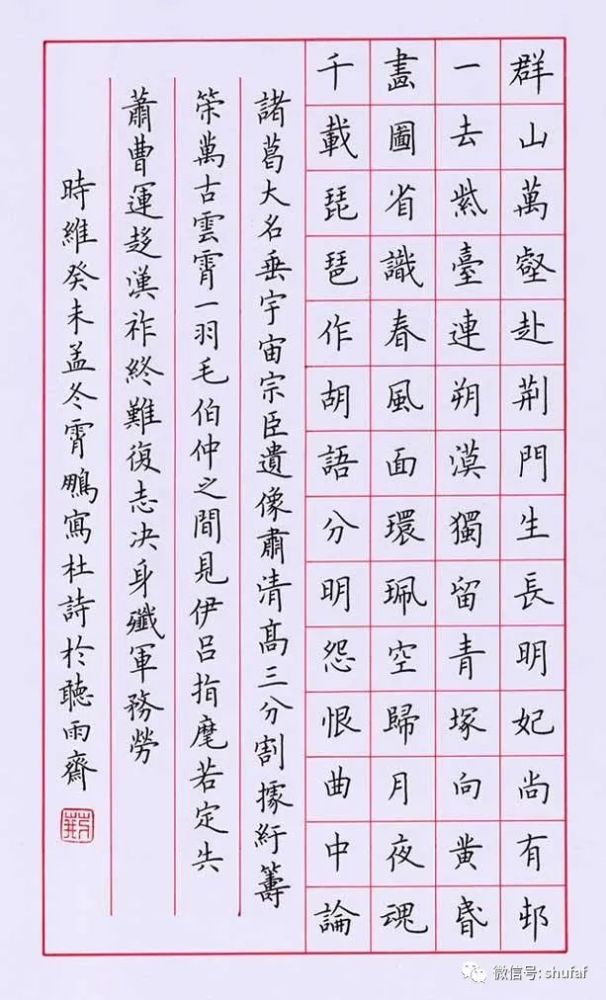 群山萬壑赴荆門生長明妃尚有邨
一去紫臺連朔漠獨留青塚向黄昏
畫圖省識春風面環珮空歸月夜魂
千載琵琶作胡語分明怨恨曲中論
諸葛大名垂宇宙宗臣遺像肅清高三分割據紆籌
策萬古雲霄一羽毛伯仲之間見伊吕指麾若定失
蕭曹運移漢祚終難復志决身殲軍務勞
時維癸未孟冬霄鵬寫杜詩於聽雨齋
微信号: shufaf